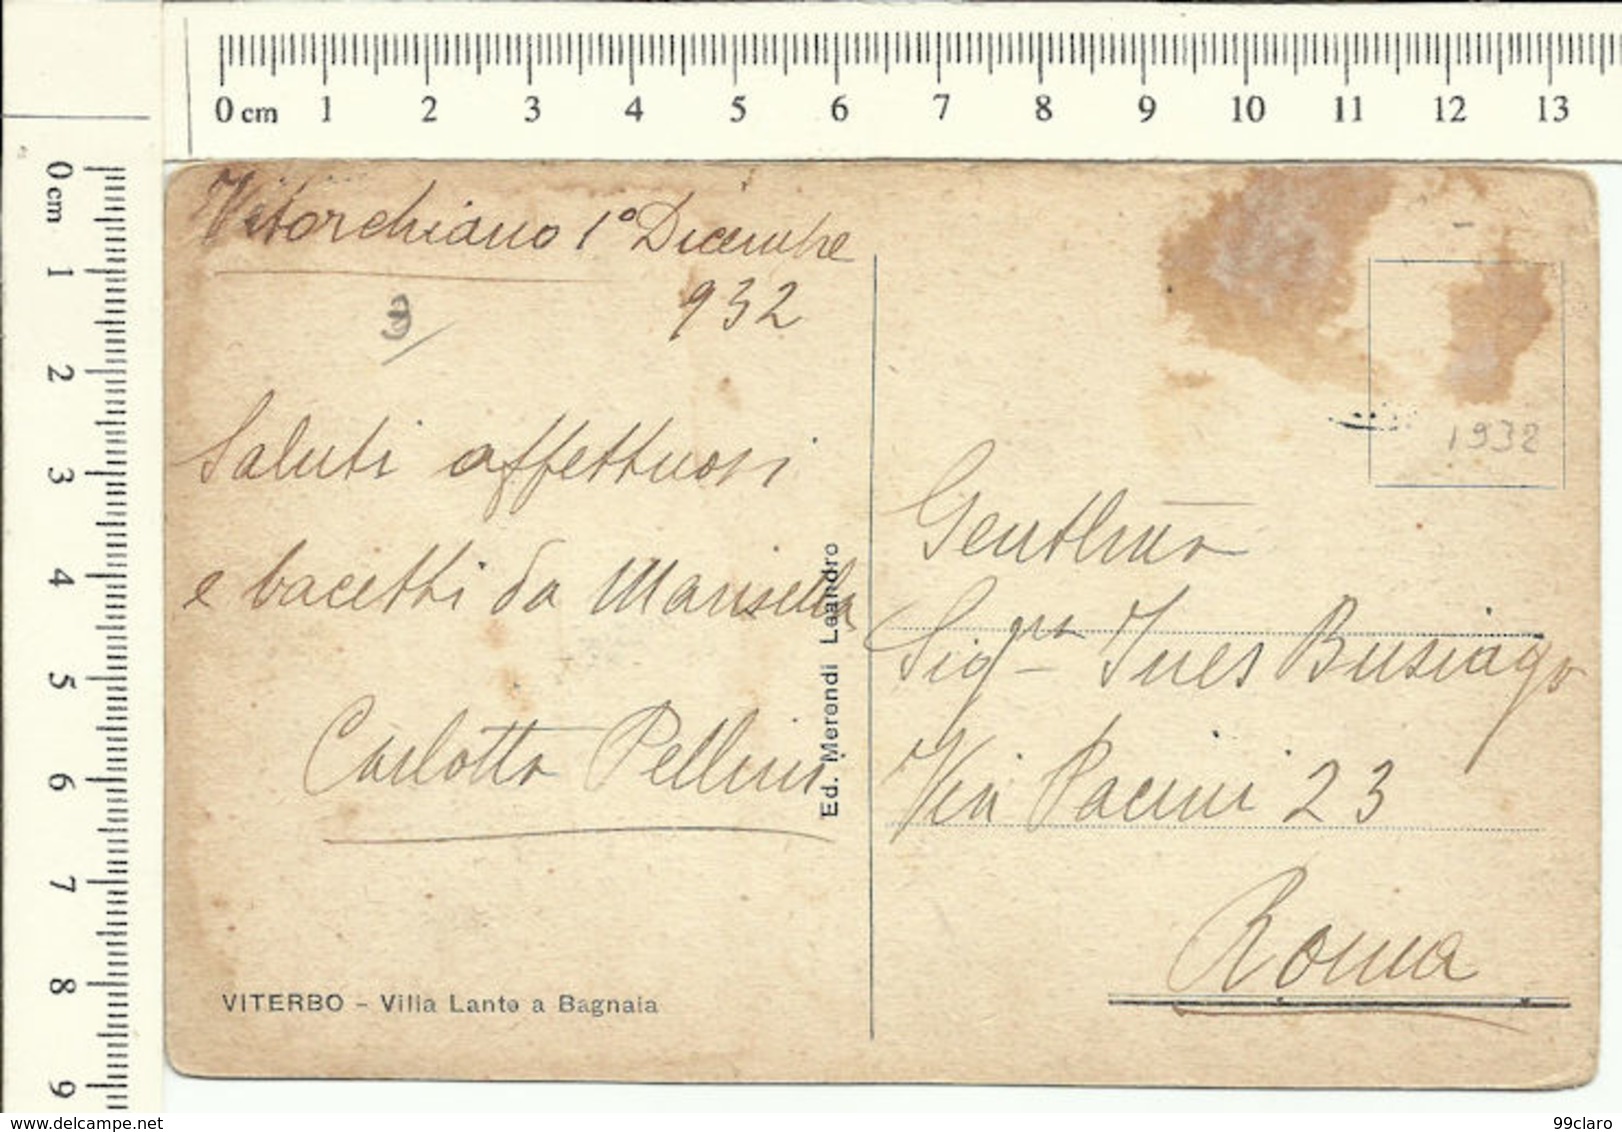 0 cm 1 2 3 4 5 6 7 8 9 10 11 12 13
0 cm 1 2 3 4 5 6 7 8 9
Vitorchiano 1° Dicembre
932
3/
Saluti affettuosi
e bacetti da Marisella
Carlotta Pellini
VITERBO - Villa Lante a Bagnaia
Ed. Morondi Leandro
1932
Gentilma
Sigra Ines Businago
Via Pacini 23
Roma
99claro